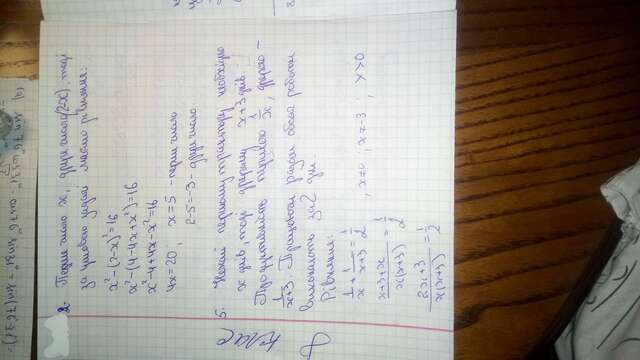 2. Перше число x, друге число (2-x), тоді
за умовою задачі маємо рівняння:
x²-(2-x)²=16
x²-(4-4x+x²)=16
x²-4+4x-x²=16
4x=20; x=5 - перше число
2-5=-3 - друге число
5. Нехай першому трактору необхідно
x днів, тоді другому x+3 днів.
Продуктивність першого 1/x, другого -
1/(x+3). Працюючи разом обсяг роботи
виконають за 2 дні
Рівняння:
1/x + 1/(x+3) = 1/2, x≠0; x≠-3; x>0
(x+3+x)/(x(x+3)) = 1/2
(2x+3)/(x(x+3)) = 1/2
8 клас